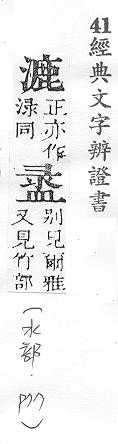 41 經典文字辨證書
漉 正亦作
渌同
盝 別見爾雅
又見竹部
(水部.